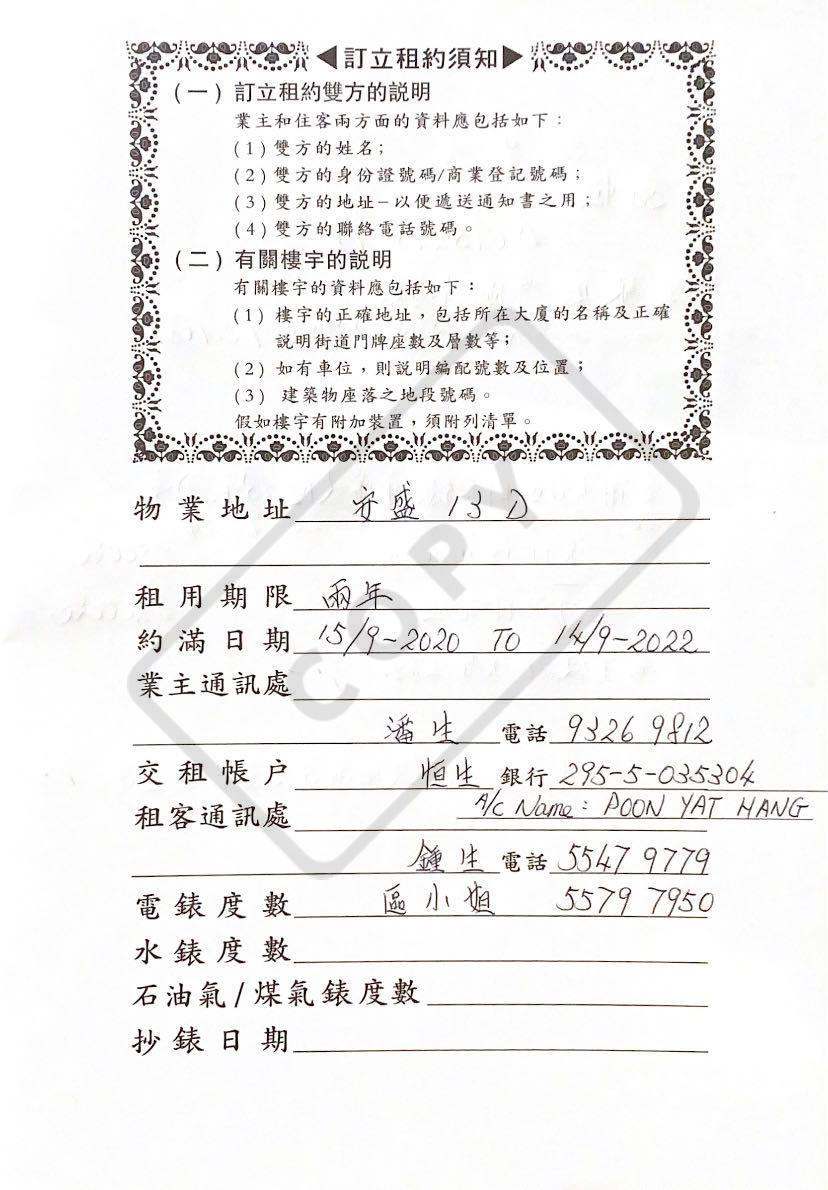 ◀訂立租約須知▶
(一) 訂立租約雙方的説明
業主和住客兩方面的資料應包括如下：
(1) 雙方的姓名；
(2) 雙方的身份證號碼/商業登記號碼；
(3) 雙方的地址–以便遞送通知書之用；
(4) 雙方的聯絡電話號碼。
(二) 有關樓宇的説明
有關樓宇的資料應包括如下：
(1) 樓宇的正確地址，包括所在大廈的名稱及正確
説明街道門牌座數及層數等；
(2) 如有車位，則説明編配號數及位置；
(3) 建築物座落之地段號碼。
假如樓宇有附加裝置，須附列清單。
COPY
物業地址 安盛 13 D
租用期限 兩年
約滿日期 15/9-2020 TO 14/9-2022
業主通訊處
潘生 電話 9326 9812
交租帳户 恒生 銀行 295-5-035304
租客通訊處 A/C Name: POON YAT HANG
鍾生 電話 5547 9779
電錶度數 區小姐 5579 7950
水錶度數
石油氣/煤氣錶度數
抄錶日期